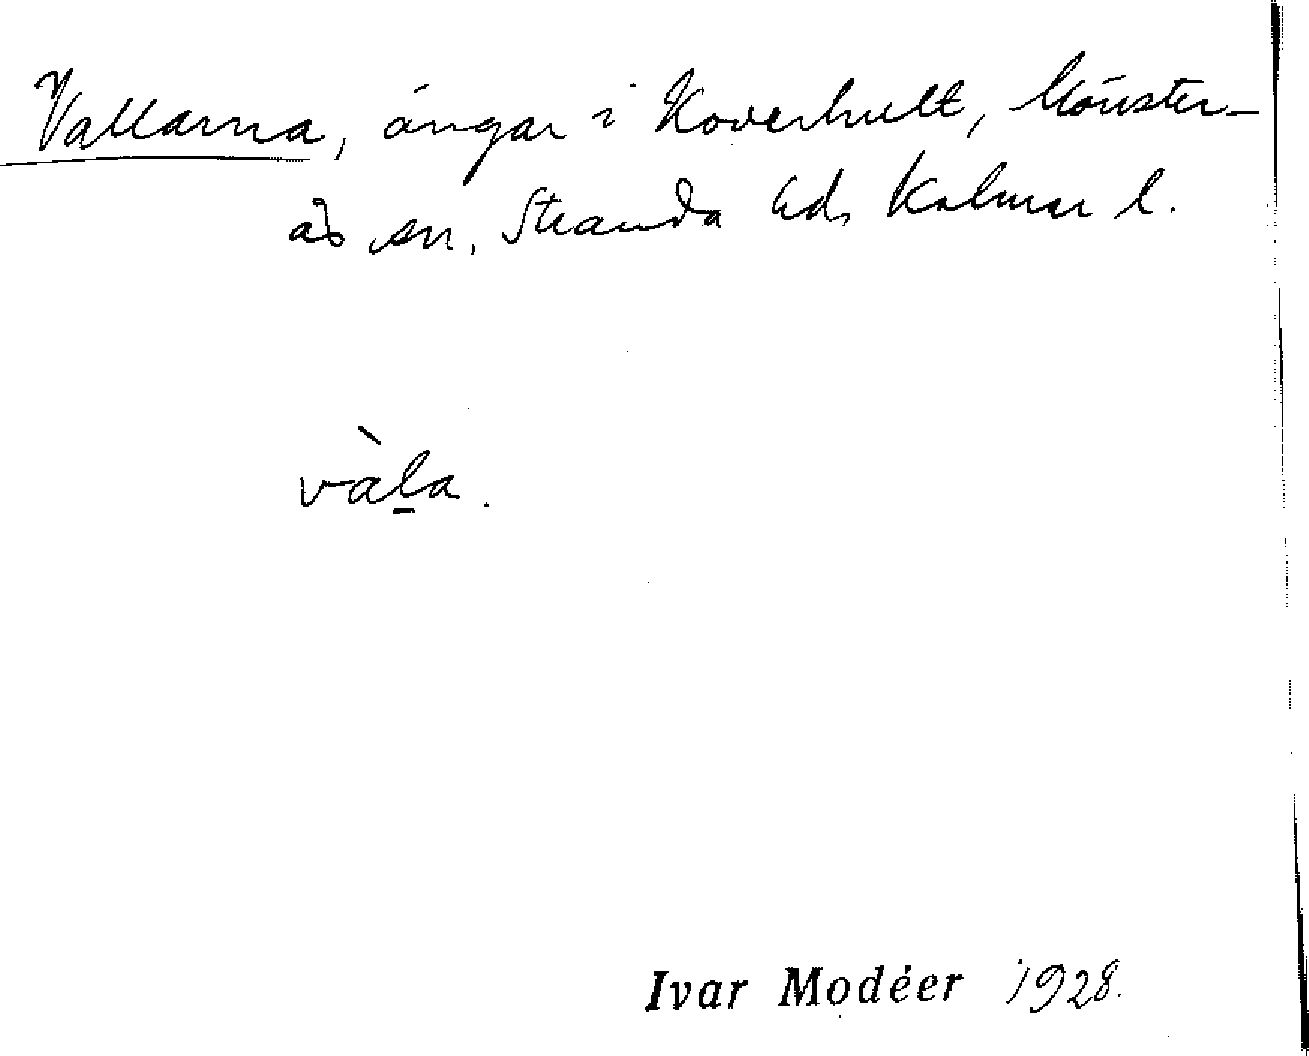 Vallarna, ängar i Koverhult, Mönster-
ås sn, Stranda hd, Kalmar l.
vàl̠a.
Ivar Modéer 1928.